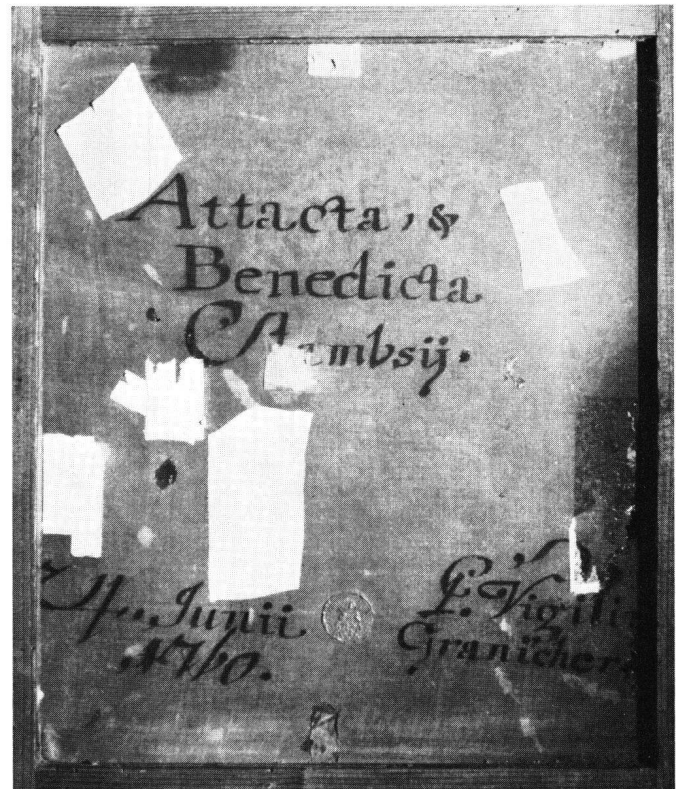 Attacta, &
Benedicta
Clambsij.
24. Junii
1760.
P. Vigili
Granicher